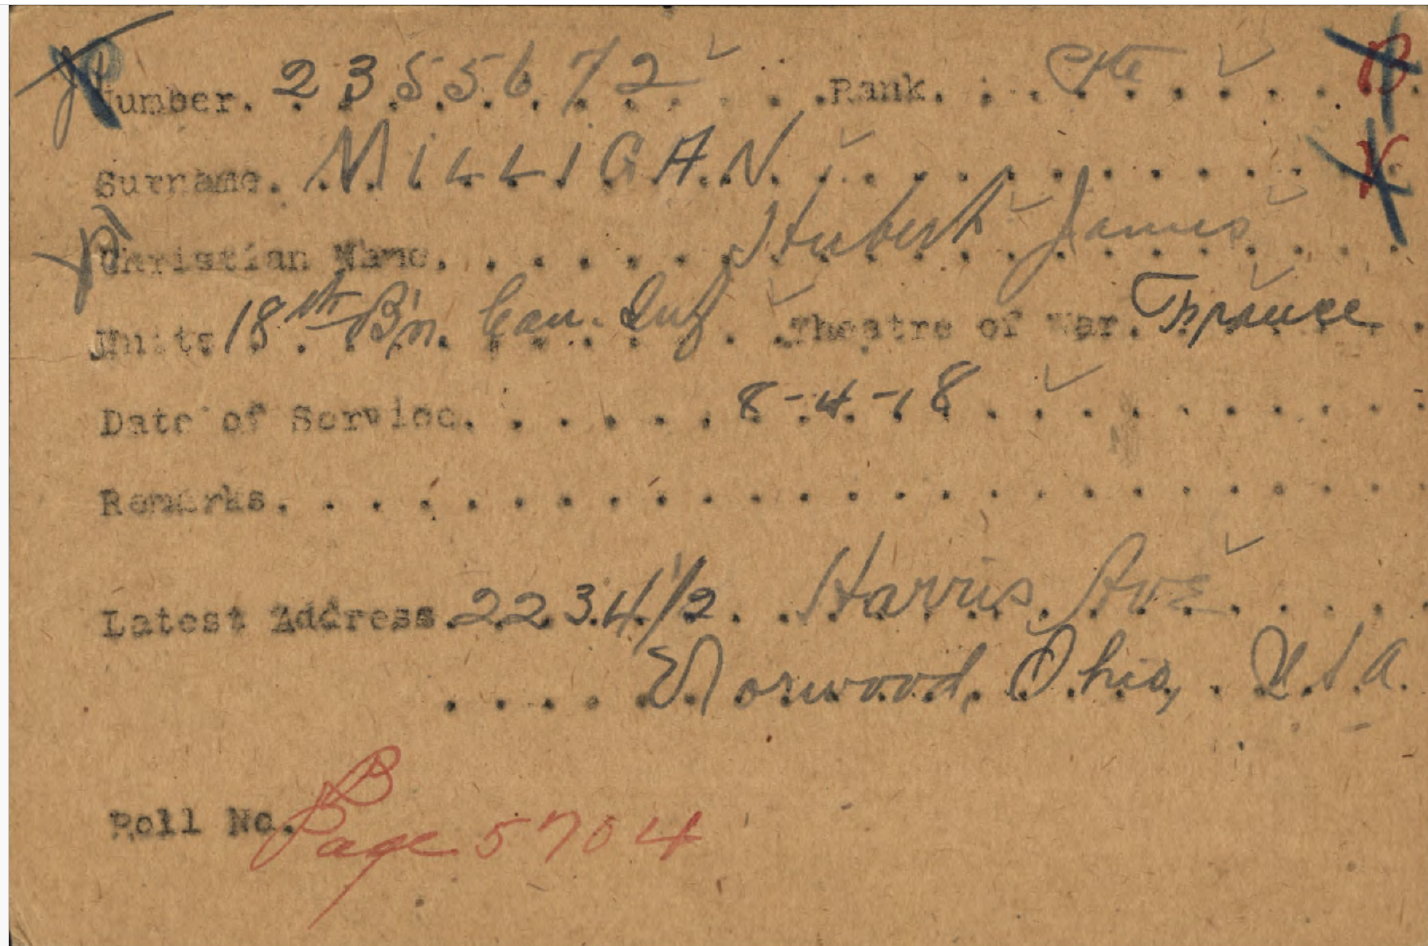 Number. 2355672 Rank. Pte B
Surname. MILLIGAN. V
Christian Name. Hubert James
Units 18th B'n. Can. Inf. Theatre of War. France
Date of Service. 8-4-18
Remarks.
Latest Address. 2234 1/2. Harris Ave
Norwood, Ohio, U.S.A.
B
Roll No. Page 5704